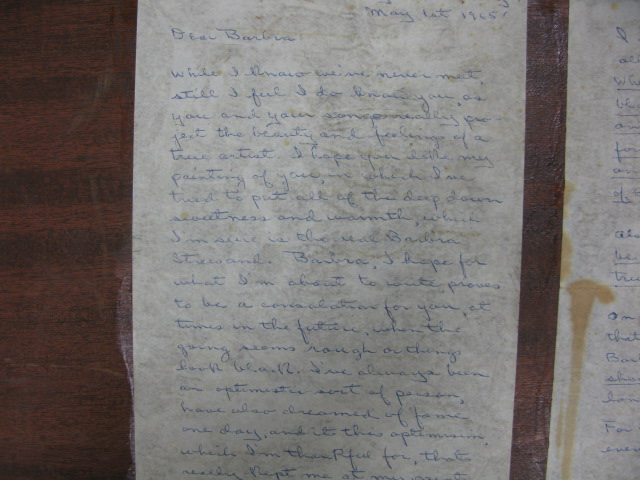 May 1st 1965
Dear Barbra
While I know we've never met,
still I feel I do know you, as
you and your songs really pro-
ject the beauty and feelings of a
true artist. I hope you like my
painting of you, in which I've
tried to put all of the deep down
sweetness and warmth, which
I'm sure is the real Barbra
Streisand. Barbra, I hope for
what I'm about to write proves
to be a consolation for you, at
times in the future, when the
going seems rough or things
look black. I've always been
an optimistic sort of person,
have also dreamed of fame
one day, and it's this optimism,
which I'm thankful for, that
really kept me at my
I
wh
bl
an
for
an
of
be
tru
on
that
Bar
sho
lon
For
even